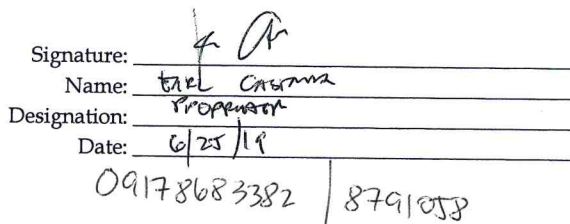 Signature:
Name: EARL
Designation: PROPRIETOR
Date: 6/25/19
09178683382 | 8791058